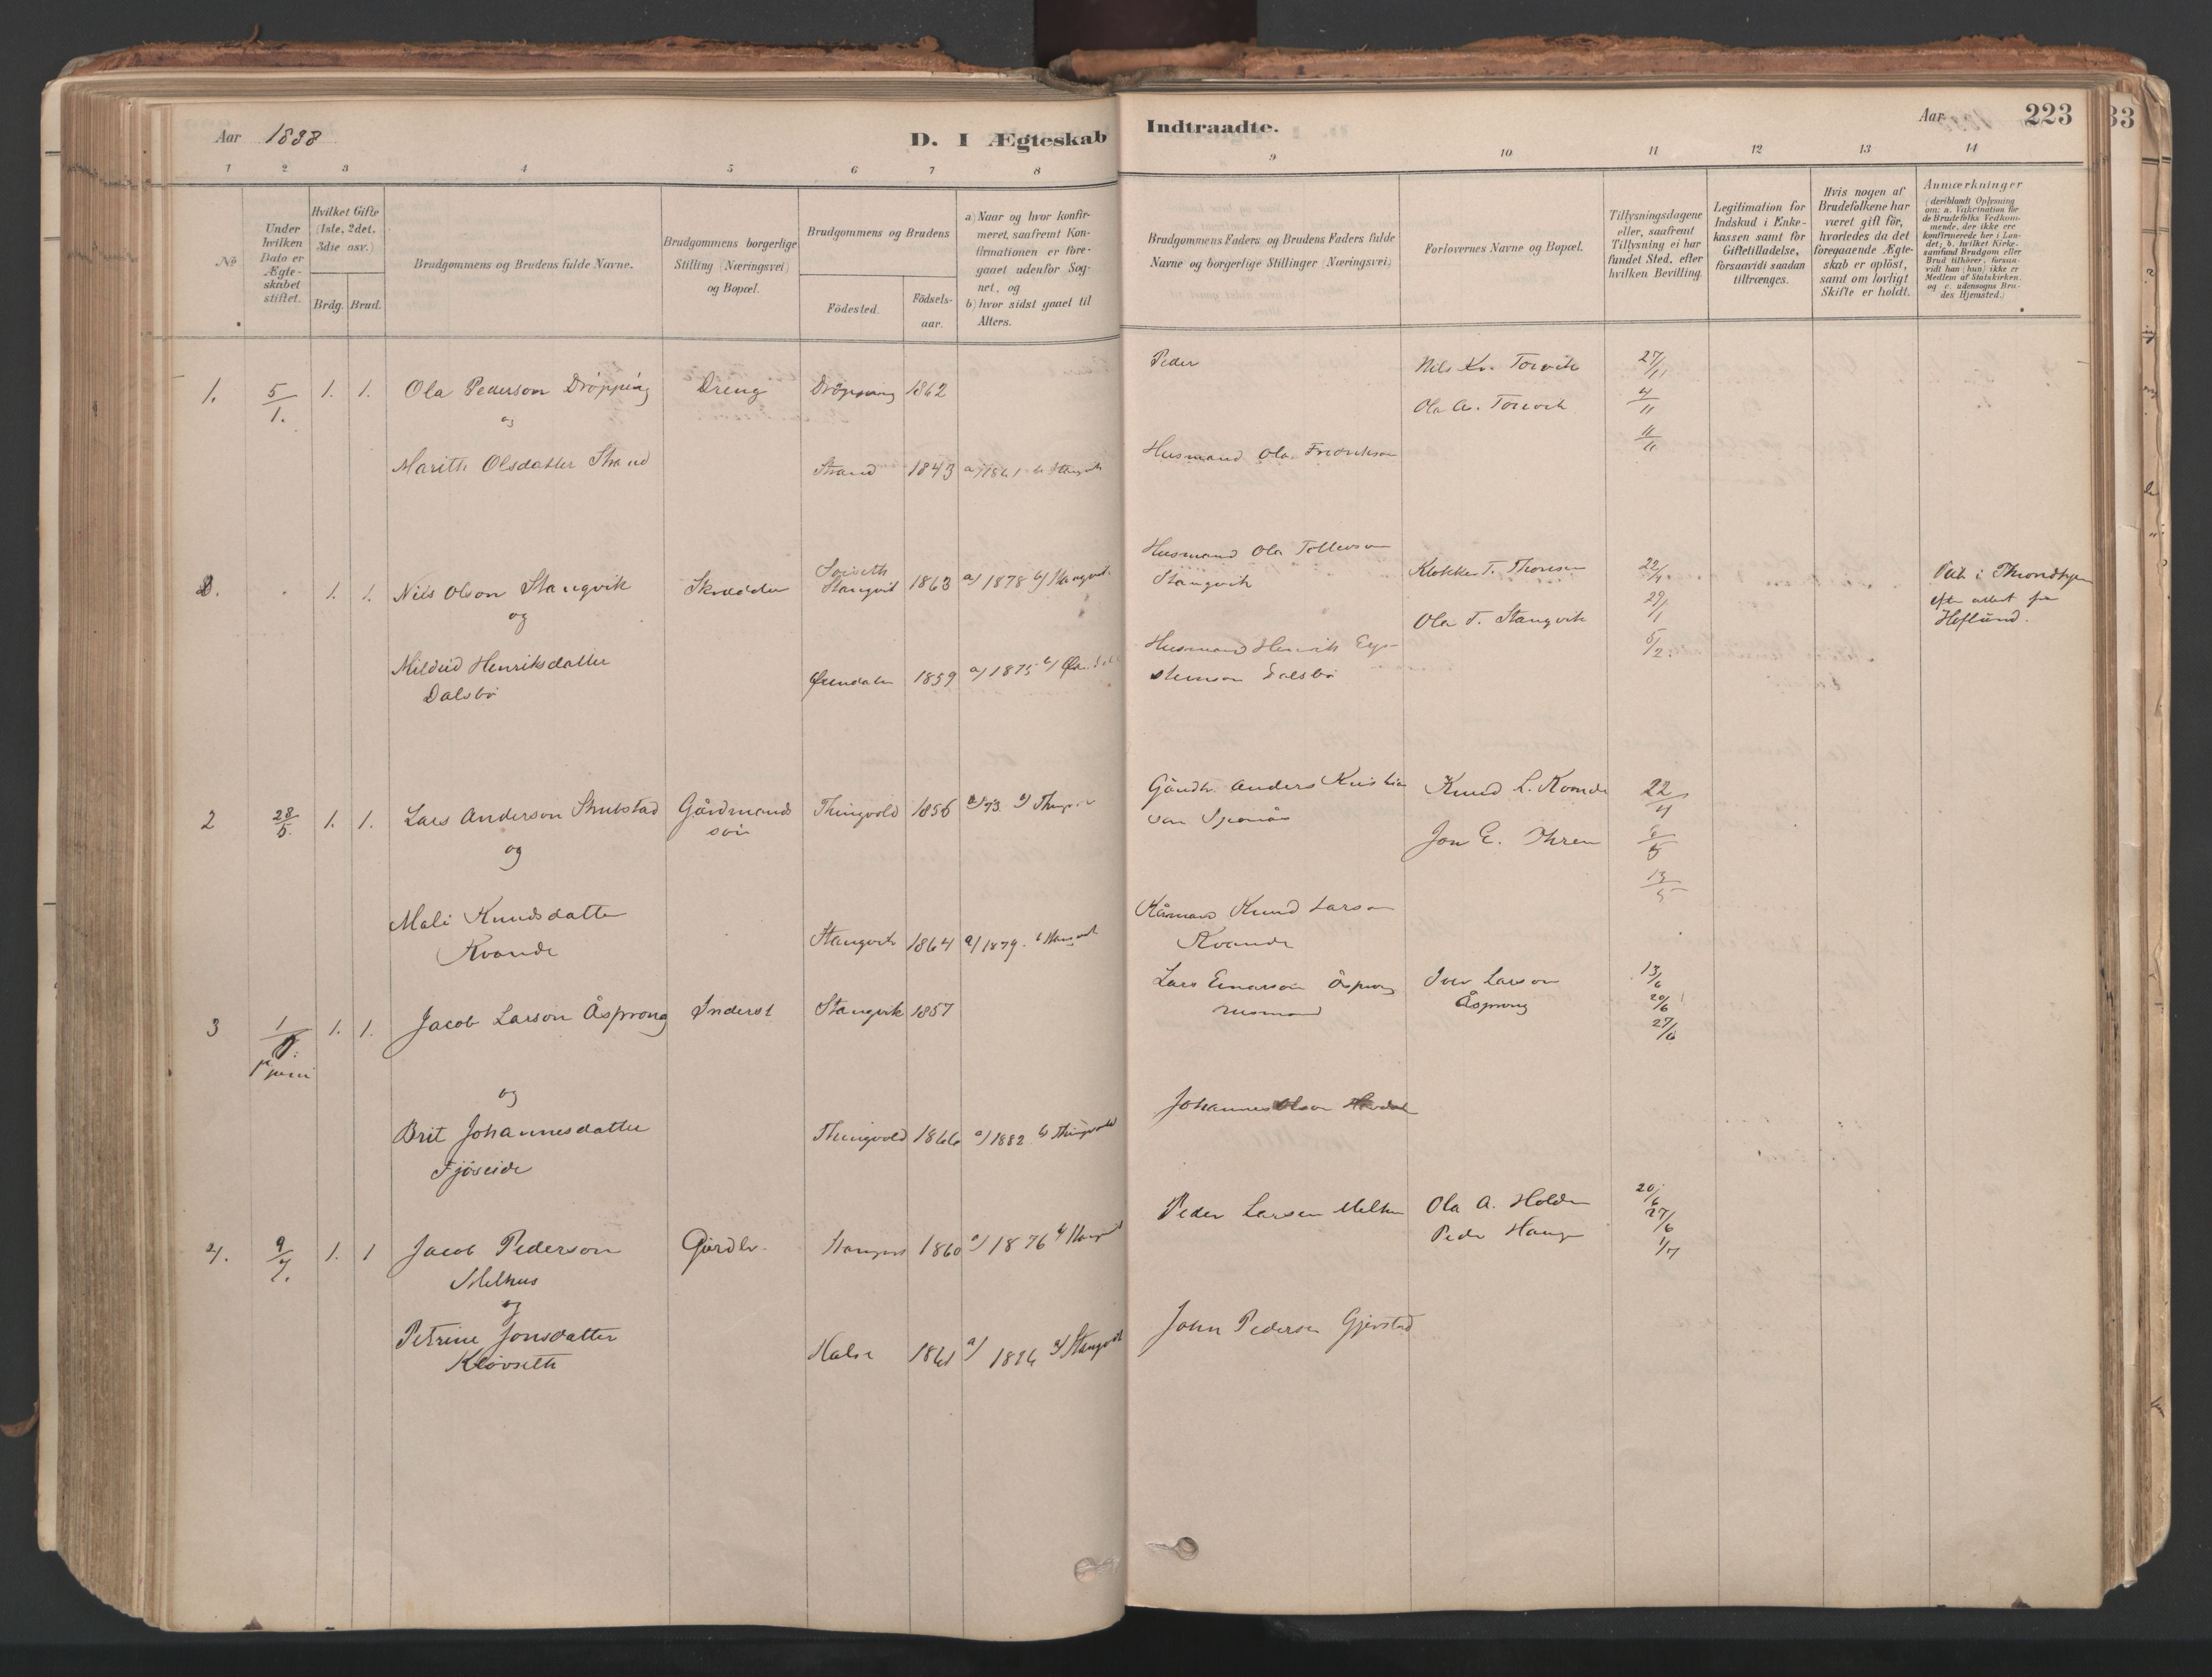 Aar 1888
D. I Ægteskab
Indtraadte.
Aar 223
33
1 2 3 4 5 6 7 8
9 10 11 12 13 14
No
Under hvilken Dato er Ægteskabet stiftet.
Hvilket Gifte (1ste, 2det, 3die osv.)
Brdg. Brud.
Brudgommens og Brudens fulde Navne.
Brudgommens borgerlige Stilling (Næringsvei) og Bopæl.
Brudgommens og Brudens
Födested.
Födselsaar.
a) Naar og hvor konfirmeret, saafremt Konfirmationen er foregaaet udenfor Sognet, og
b) hvor sidst gaaet til Alters.
Brudgommens Faders og Brudens Faders fulde Navne og borgerlige Stillinger (Næringsvei)
Forlovernes Navne og Bopæl.
Tillysningsdagene eller, saafremt Tillysning ei har fundet Sted, efter hvilken Bevilling.
Legitimation for Indskud i Enkekassen samt for Giftetilladelse, forsaavidt saadan tiltrænges.
Hvis nogen af Brudefolkene har været gift för, hvorledes da det foregaaende Ægteskab er oplöst, samt om lovligt Skifte er holdt.
Anmærkninger (deriblandt Oplysning om: a. Vakcination for de Brudefolks Vedkommende, der ikke ere konfirmerede her i Landet; b. hvilket Kirkesamfund Brudgom eller Brud tilhörer, forsaavidt han (hun) ikke er Medlem af Statskirken, og c. udensogns Brudes Hjemsted.)
1. 5/1. 1. 1. Ola Pederson Dröpping Dreng Dröpping 1862
Peder
Nils Kr. Torvik 27/11
Ola A. Torvik 4/11
11/11
og
Marith Olsdatter Strand Strand 1843 a) 1861 b) Stangvik
Husmand Ola Fredrikson
2. 1. 1. Nils Olson Stangvik Skrædder Stangvik 1863 a) 1878 b) Stangvik
Husmand Ola Tollevson
Stangvik
Klokker T. Thoresen 22/1
Ola T. Stangvik 29/1
5/2.
i Throndhjem
efter attest fra
og
Mildrid Henriksdatter
Dalsbö
Øxendalen 1859 a) 1875 b)
Husmand Henrik Eystenson Dalsbö
2 28/5. 1. 1. Lars Anderson Gårdmands sön Thingvold 1856 a) 73.
Gårdbr. Anders Kristian
Knud L. Kvande 22/4
Jon E. 6/5
13/5
og
Mali Knudsdatter
Kvande
Stangvik 1864 a) 1879. b) Stangvik
Kårmand Knud Larson
Kvande
3 1/7. juli 1. 1. Jacob Larson Åsprong Inderst Stangvik 1857
Lars Einarson Åsprong
Husmand
Iver Larson
Åsprong
13/6
20/6
27/6
og
Brit Johannesdatter
Fjöseide
Thingvold 1866 a) 1882 b) Thingvold
Johannes Olson
4. 9/7. 1. 1 Jacob Pederson
Melhus
Gårdbr. Stangvik 1860 a) 1876 b) Stangvik
Peder Larsen Melhus
Ola A. Holden
Peder Hauge
20/6
27/6
1/7
og
Petrine Jonsdatter
Klövseth
Halse 1861 a) b) Stangvik
John Pedersen Gjerstad